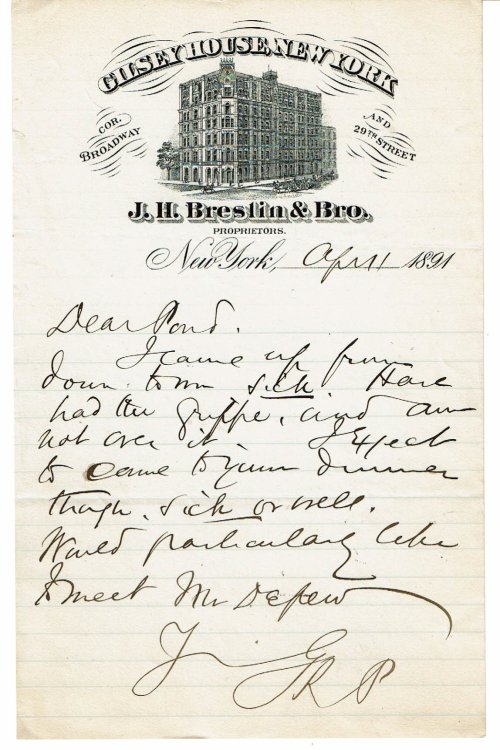 GILSEY HOUSE, NEW YORK
COR. BROADWAY
AND 29TH STREET
J. H. Breslin & Bro.
PROPRIETORS.
New York, Apr 11 1891
Dear Pond.
I came up from
down town sick Have
had the Grippe, and am
not over it. I expect
to come to your dinner
though, sick or well.
Would particularly like
to meet Mr Depew
GRP